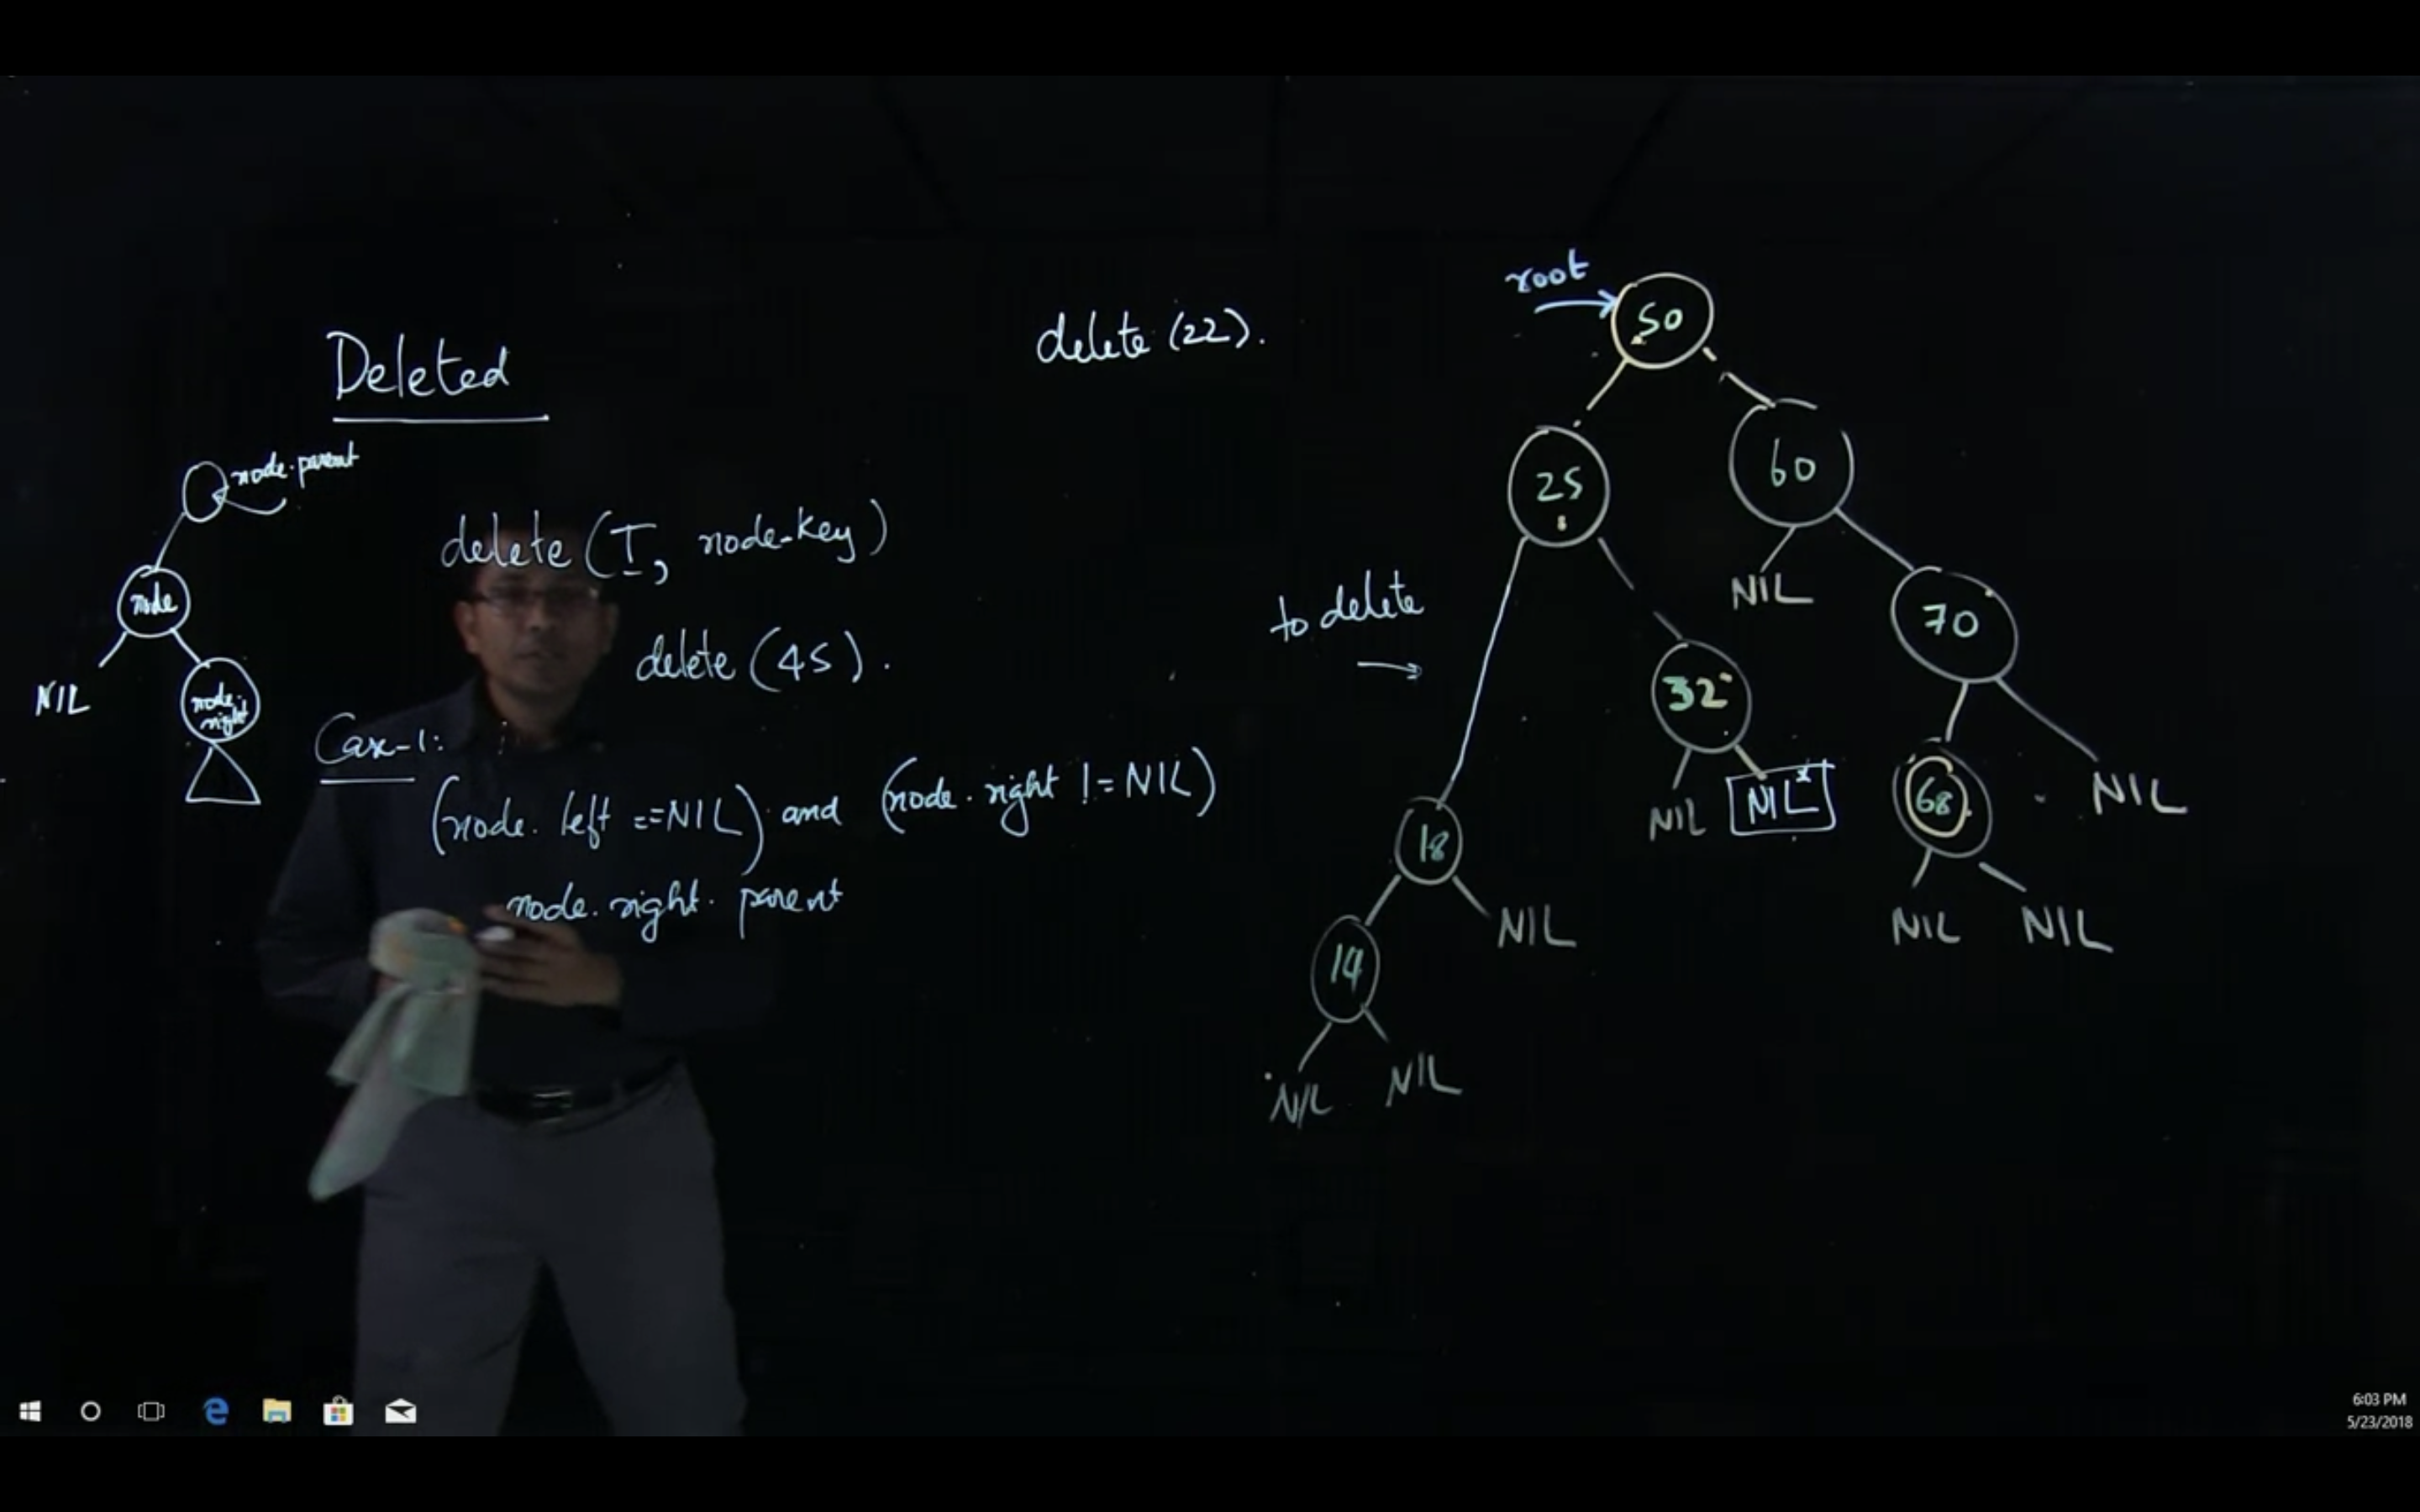 Deleted
node.parent
node
NIL
node.right
delete (T, node-key)
delete (45).
Case-1:
(node. left ==NIL) and (node. right != NIL)
node. right. parent
delete (22).
root
50
25
60
to delete
NIL
70
32
NIL
NIL
68
NIL
18
NIL
NIL
NIL
14
NIL
NIL
6:03 PM
5/23/2018